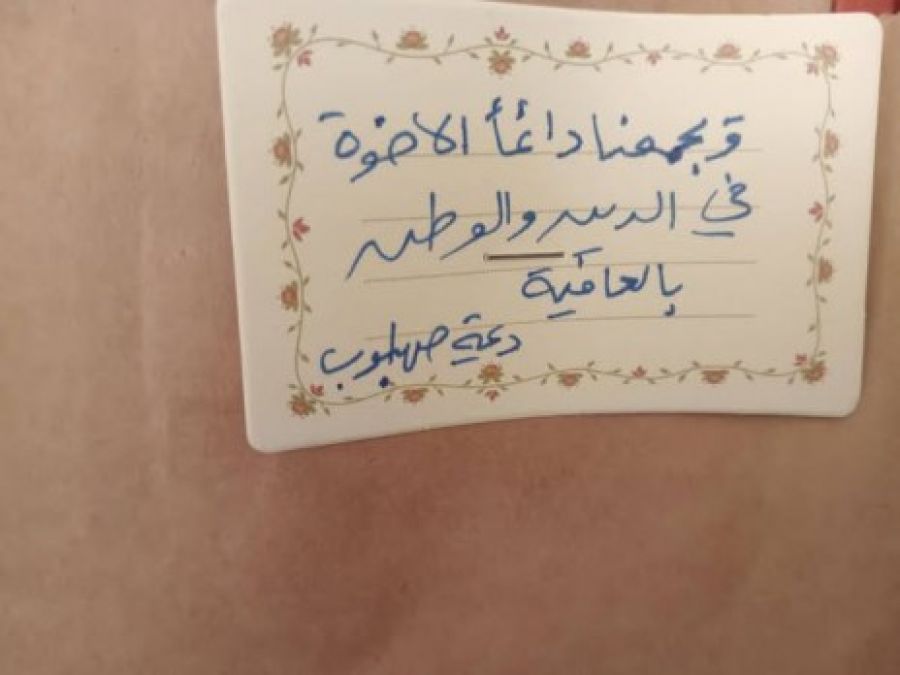 وتجمعنا دائماً الاخوة
في الدين والوطن
بالعافية
صهلوب